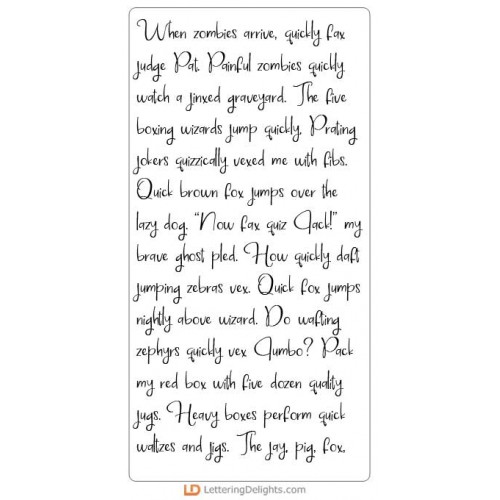 When zombies arrive, quickly fax
judge Pat. Painful zombies quickly
watch a jinxed graveyard. The five
boxing wizards jump quickly. Prating
jokers quizzically vexed me with fibs.
Quick brown fox jumps over the
lazy dog. "Now fax quiz Jack!" my
brave ghost pled. How quickly daft
jumping zebras vex. Quick fox jumps
nightly above wizard. Do wafting
zephyrs quickly vex Jumbo? Pack
my red box with five dozen quality
jugs. Heavy boxes perform quick
waltzes and jigs. The jay, pig, fox,
LD LetteringDelights.com